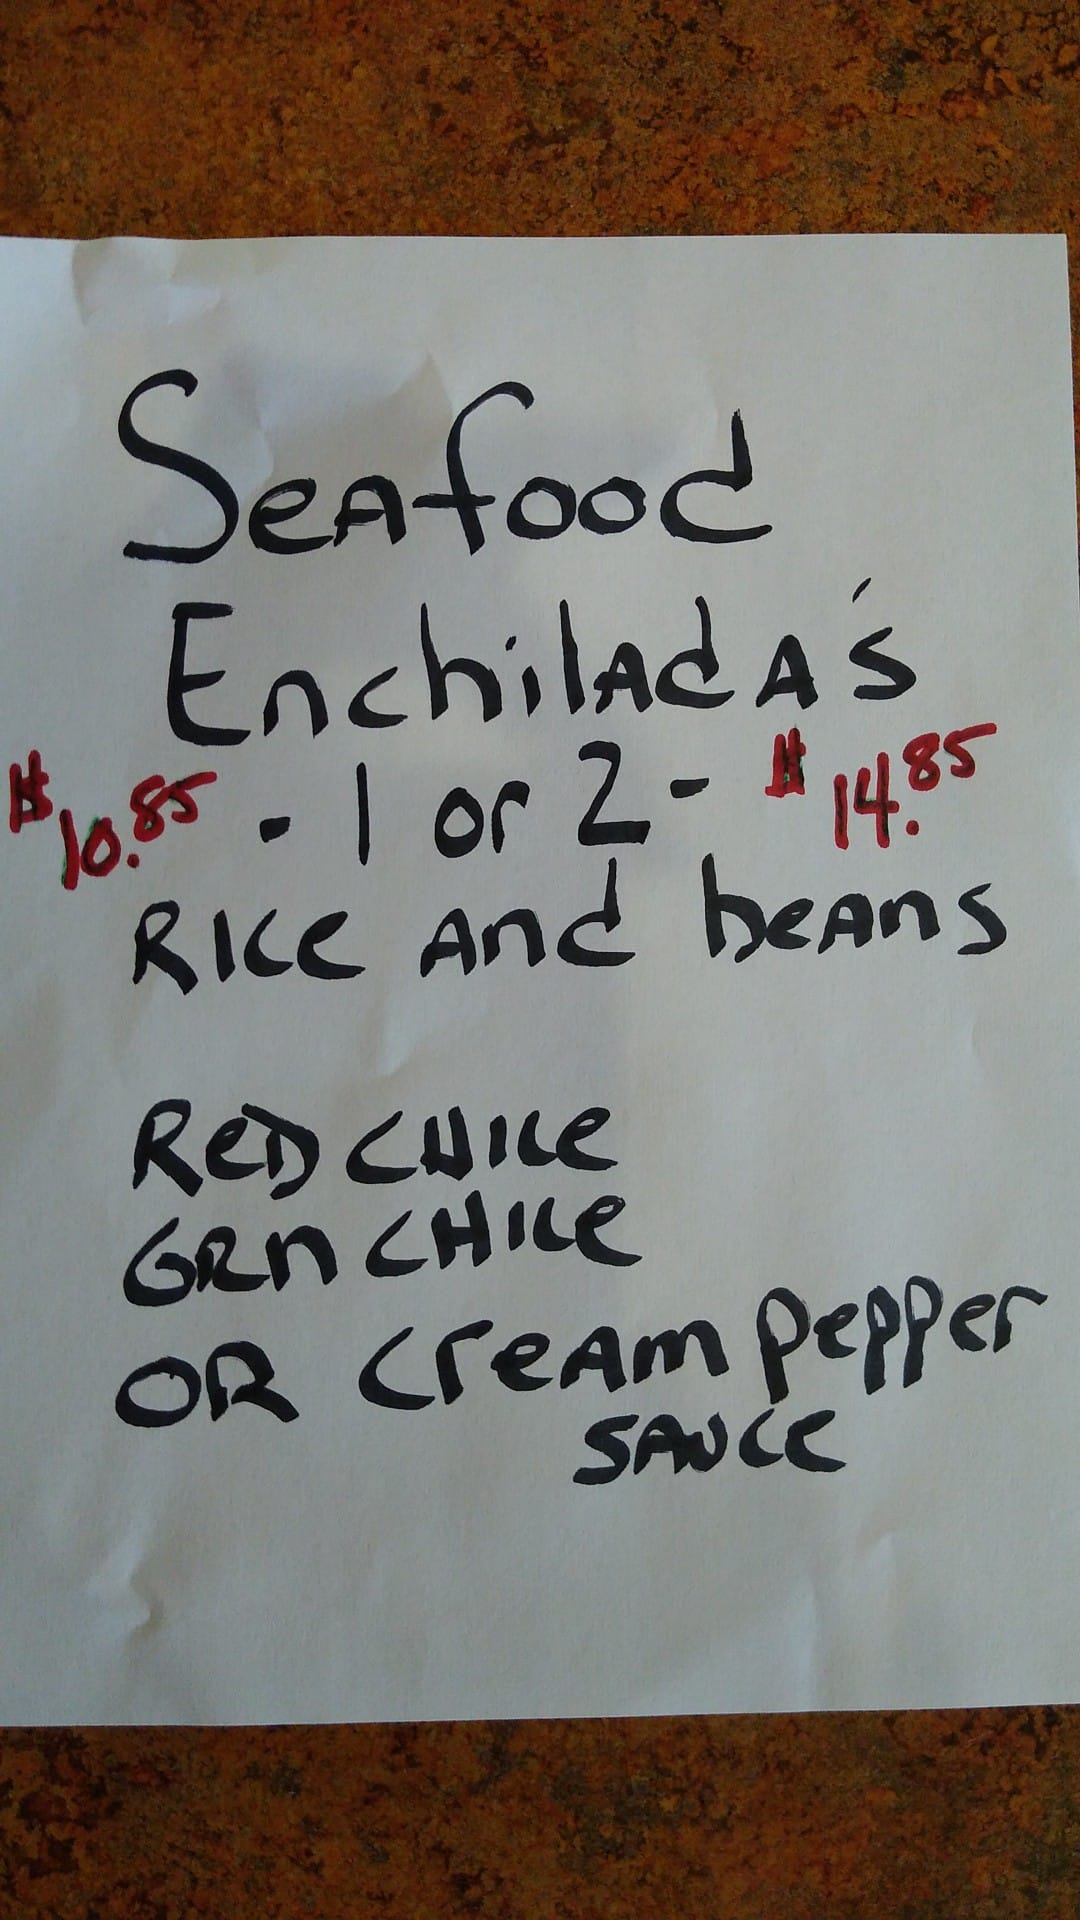 Seafood
Enchilada's
$10.85 - 1 or 2 - $14.85
Rice and beans
Red CHILE
GRN CHILE
OR Cream pepper
SAUCE